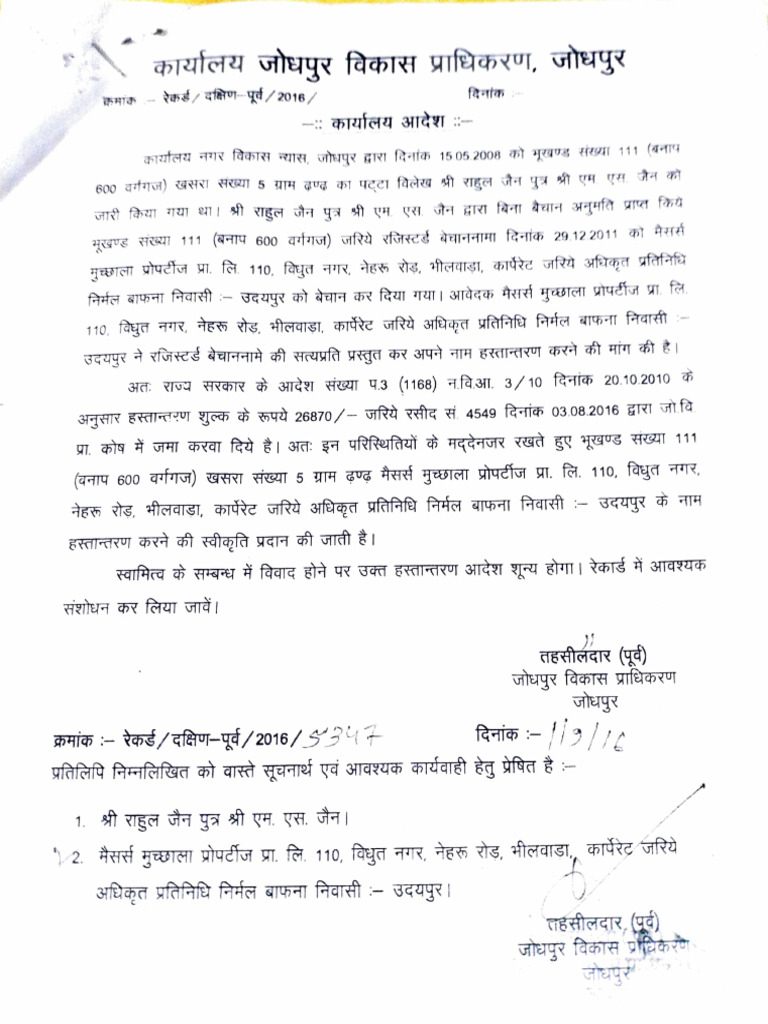 कार्यालय जोधपुर विकास प्राधिकरण, जोधपुर
क्रमांक :- रेकर्ड/दक्षिण-पूर्व/2016/ दिनांक :-
-:: कार्यालय आदेश ::-
कार्यालय नगर विकास न्यास, जोधपुर द्वारा दिनांक 15.05.2008 को भूखण्ड संख्या 111 (बनाप
600 वर्गगज) खसरा संख्या 5 ग्राम ढ़ण्ढ़ का पट्टा विलेख श्री राहुल जैन पुत्र श्री एम. एस. जैन को
जारी किया गया था। श्री राहुल जैन पुत्र श्री एम. एस. जैन द्वारा बिना बैचान अनुमति प्राप्त किये
भूखण्ड संख्या 111 (बनाप 600 वर्गगज) जरिये रजिस्टर्ड बेचाननामा दिनांक 29.12.2011 को मैसर्स
मुच्छाला प्रोपर्टीज प्रा. लि. 110, विधुत नगर, नेहरू रोड़, भीलवाड़ा, कार्पेरेट जरिये अधिकृत प्रतिनिधि
निर्मल बाफना निवासी :- उदयपुर को बेचान कर दिया गया। आवेदक मैसर्स मुच्छाला प्रोपर्टीज प्रा. लि.
110, विधुत नगर, नेहरू रोड़, भीलवाड़ा, कार्पेरेट जरिये अधिकृत प्रतिनिधि निर्मल बाफना निवासी :-
उदयपुर ने रजिस्टर्ड बेचाननामे की सत्यप्रति प्रस्तुत कर अपने नाम हस्तान्तरण करने की मांग की है।
अतः राज्य सरकार के आदेश संख्या प.3 (1168) न.वि.आ. 3/10 दिनांक 20.10.2010 के
अनुसार हस्तान्तरण शुल्क के रूपये 26870/- जरिये रसीद सं. 4549 दिनांक 03.08.2016 द्वारा जो.वि.
प्रा. कोष में जमा करवा दिये है। अतः इन परिस्थितियों के मद्देनजर रखते हुए भूखण्ड संख्या 111
(बनाप 600 वर्गगज) खसरा संख्या 5 ग्राम ढ़ण्ढ़ मैसर्स मुच्छाला प्रोपर्टीज प्रा. लि. 110, विधुत नगर,
नेहरू रोड़, भीलवाड़ा, कार्पेरेट जरिये अधिकृत प्रतिनिधि निर्मल बाफना निवासी :- उदयपुर के नाम
हस्तान्तरण करने की स्वीकृति प्रदान की जाती है।
स्वामित्व के सम्बन्ध में विवाद होने पर उक्त हस्तान्तरण आदेश शून्य होगा। रेकार्ड में आवश्यक
संशोधन कर लिया जावें।
तहसीलदार (पूर्व)
जोधपुर विकास प्राधिकरण
जोधपुर
क्रमांक :- रेकर्ड/दक्षिण-पूर्व/2016/5347 दिनांक :- 1/9/16
प्रतिलिपि निम्नलिखित को वास्ते सूचनार्थ एवं आवश्यक कार्यवाही हेतु प्रेषित है :-
1. श्री राहुल जैन पुत्र श्री एम. एस. जैन।
2. मैसर्स मुच्छाला प्रोपर्टीज प्रा. लि. 110, विधुत नगर, नेहरू रोड़, भीलवाड़ा, कार्पेरेट जरिये
अधिकृत प्रतिनिधि निर्मल बाफना निवासी :- उदयपुर।
तहसीलदार, (पूर्व)
जोधपुर विकास प्राधिकरण
जोधपुर